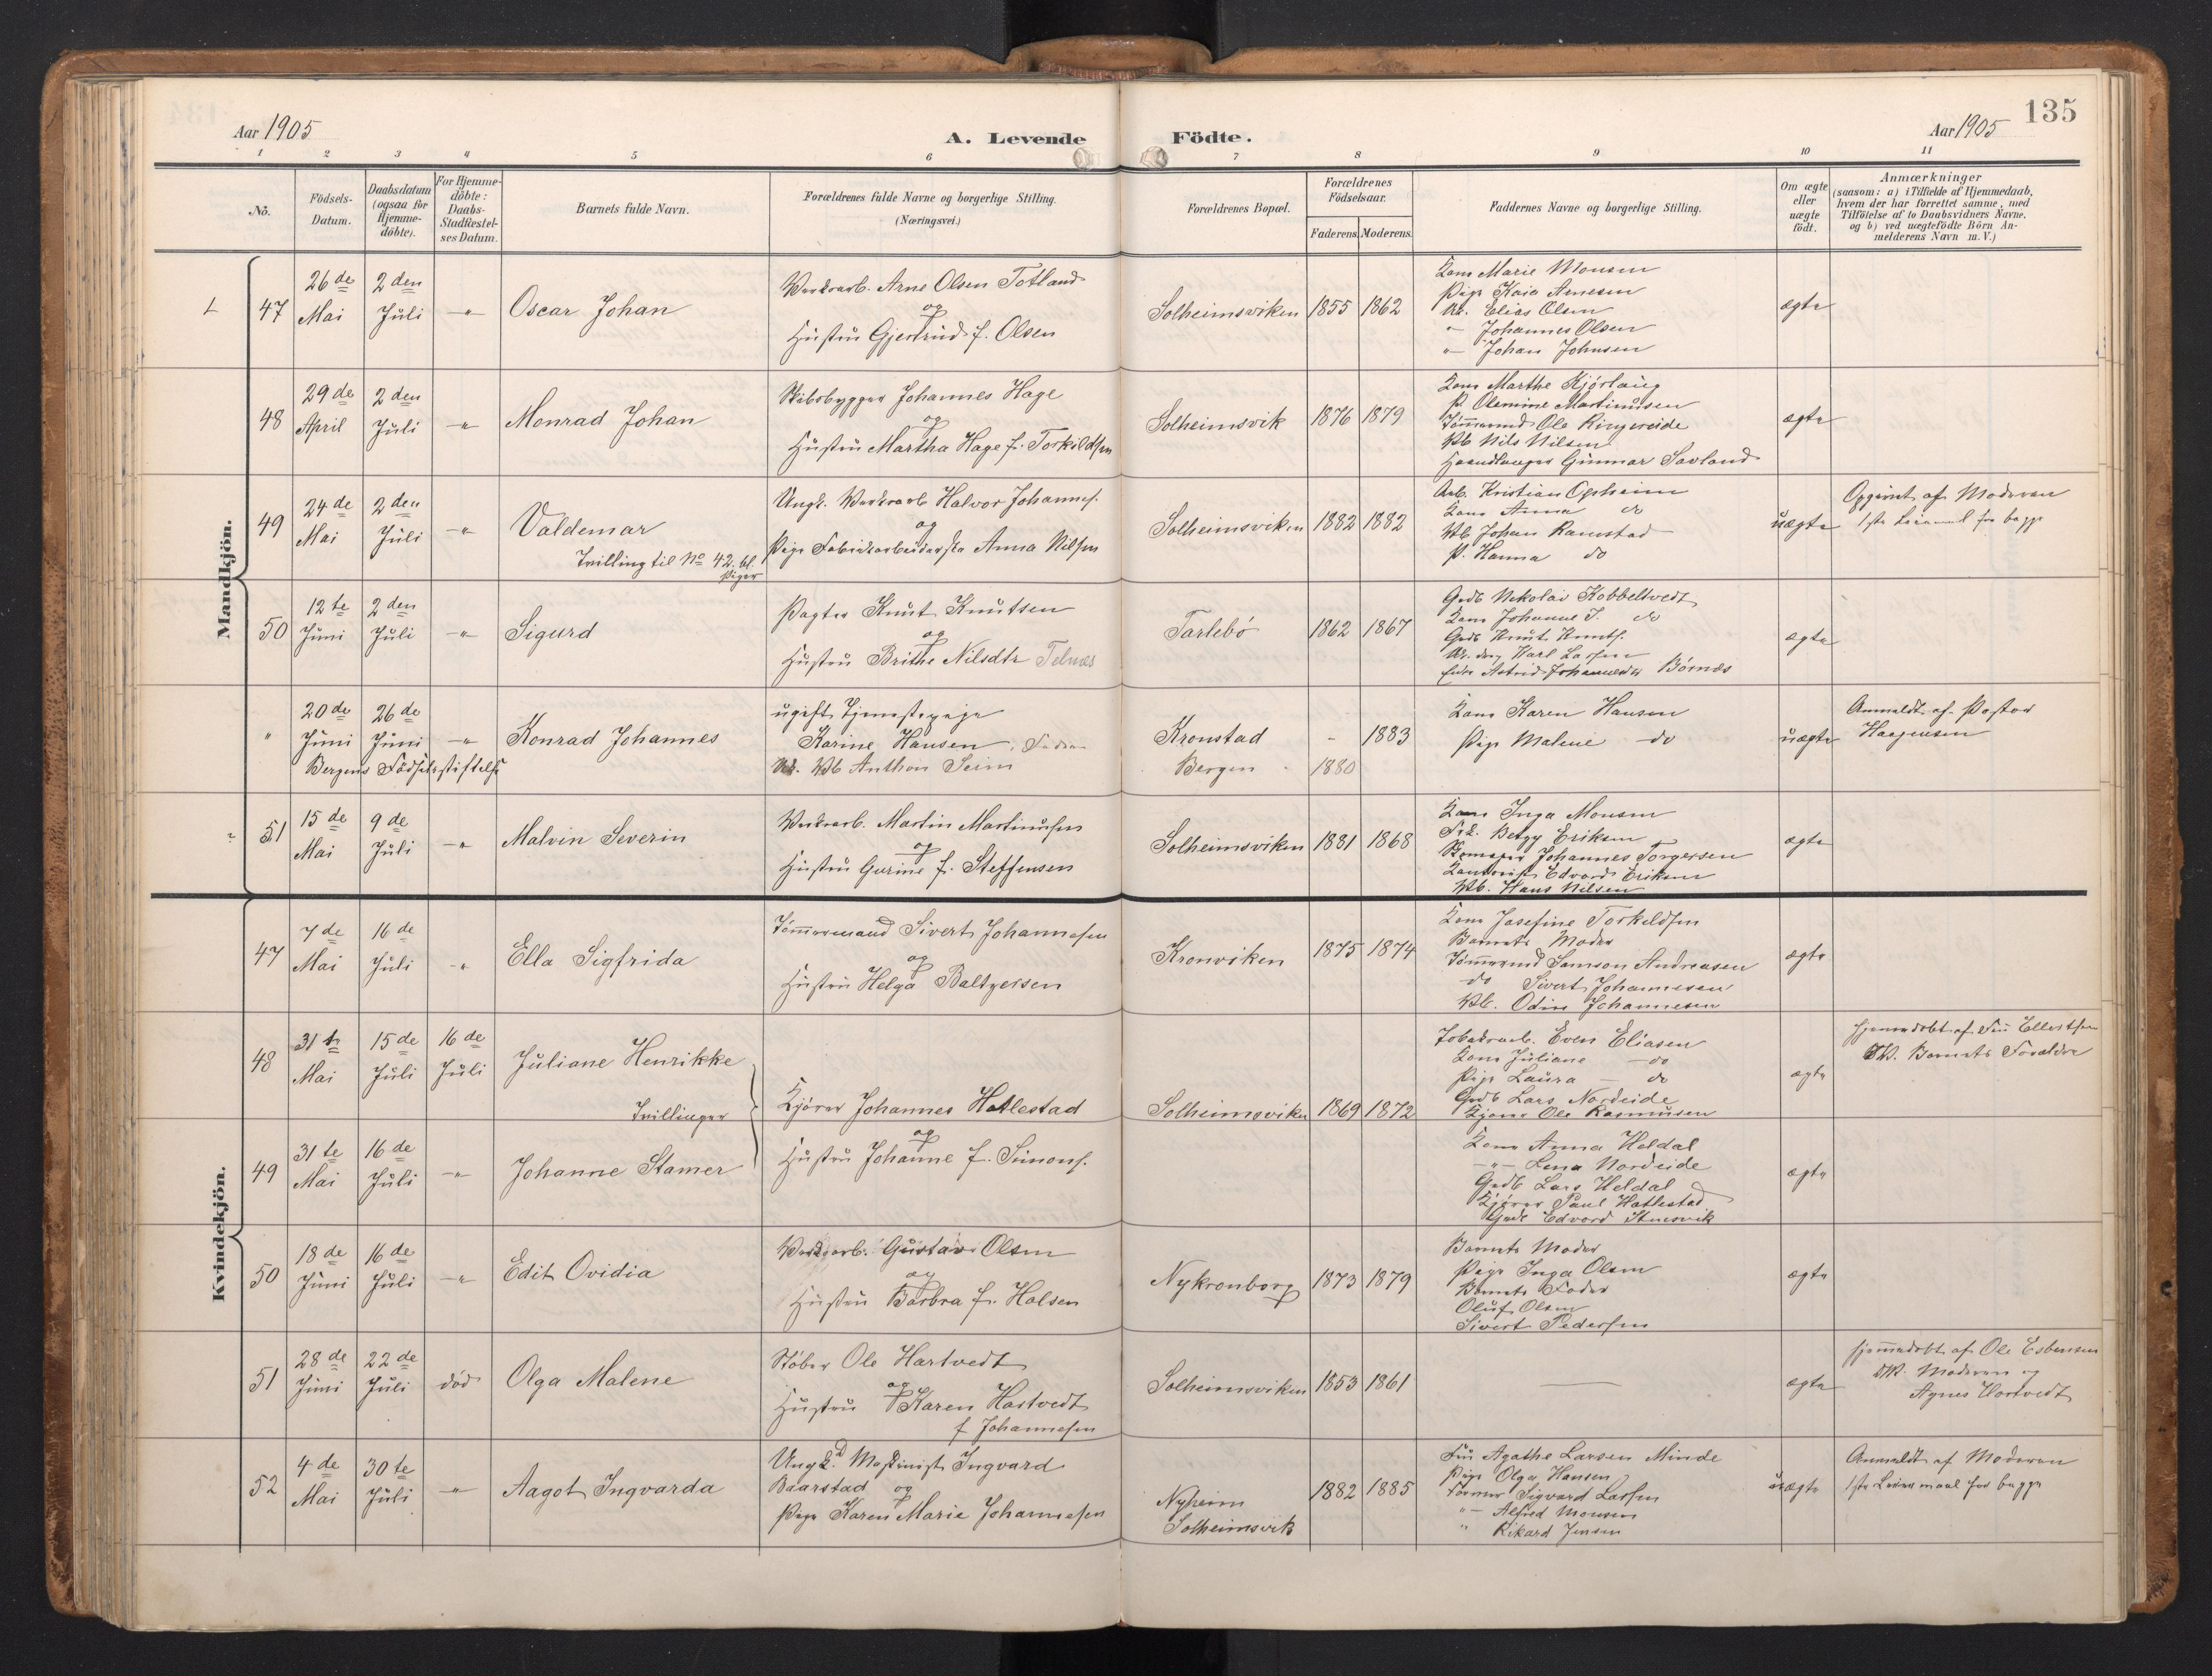 135
Aar 1905
A. Levende Födte.
Aar 1905
1 2 3 4 5 6 7 8 9 10 11
No.
Födsels-
Datum.
Daabsdatum
(ogsaa for
Hjemme-
döbte).
For Hjemme-
döbte:
Daabs-
Stadfæstel-
ses Datum.
Barnets fulde Navn.
Forældrenes fulde Navne og borgerlige Stilling.
(Næringsvei.)
Forældrenes Bopæl.
Forældrenes
Födselsaar.
Faderens. Moderens.
Faddernes Navne og borgerlige Stilling.
Om ægte
eller
uægte
födt.
Anmærkninger
(saasom: a) i Tilfælde af Hjemmedaab,
hvem der har forrettet samme, med
Tilföielse af to Daabsvidners Navne.
og b) ved uægtefödte Börn An-
melderens Navn m. V.)
Mandkjön.
47
26de
Mai
2den
Juli
-"-
Oscar Johan
Værksarb. Arne Olsen Totland
og
Hustru Gjertrud f. Olsen
Solheimsviken
1855
1862
Kone Marie Monsen
Pige Kaia Arnesen
Ar. Elias Olsen
"- Johannes Olsen
"- Johan Johnsen
ægte
48
29de
April
2den
Juli
-"-
Monrad Johan
Skibsbygger Johannes Hage
og
Hustru Martha Hage f. Torkildsen
Solheimsvik
1876
1879
Kone Marthe Kjörlaug
P. Olemine Martinusen
Tömmermd Ole Ringereide
Vb Nils Nilsen
Haandlanger Gunnar Savland
ægte
49
24de
Mai
2den
Juli
-"-
Valdemar
Tvilling til No 42. bl.
Piger
Ungk. Værksarb Halvor Johannes.
og
Pige Fabrikarbeiderske Anna Nilsen
Solheimsviken
1882
1882
Arb. Kristian Opheim
Kone Anna do
Vb Johan Ramstad
P. Hanna do
uægte
Opgivet af Moderen
1ste Leiermaal for begge
50
12te
Juni
2den
Juli
-"-
Sigurd
Pagter Knut Knutsen
og
Hustru Brithe Nilsdtr Telnes
Tarlebö
1862
1867
Gdb Nikolai Kobbeltvedt
Kone Johanne J. do
Gdb Knut Knuts.
Ar. drg Karl Larsen
Enke Astrid Johannesdtr Börnæs
ægte
"
20de
Juni
26de
Juni
-"-
Bergens Födselsstiftelse
Konrad Johannes
ugift Tjenestepige
Karine Hansen, Fader
Vb Anthon Seim
Kronstad
Bergen
-
1880
1883
Kone Karen Hansen
Pige Malene do
uægte
Anmeldt af Pastor
Haagensen
51
15de
Mai
9de
Juli
-"-
Malvin Severin
Værksarb. Martin Martinusen
og
Hustru Gurine f. Steffensen
Solheimsviken
1881
1868
Kone Inga Monsen
Frk. Betzy Eriksen
Skomager Johannes Torgersen
Kontorist Edvard Eriksen
Vb. Hans Nilsen
ægte
Kvindekjön.
47
7de
Mai
16de
Juli
-"-
Ella Sigfrida
Tömmermand Sivert Johannesen
og
Hustru Helga Baltzersen
Kronviken
1875
1874
Kone Josefine Torkildsen
Barnets Moder
Tömmermd Samson Andreasen
do Sivert Johannesen
Vb. Odin Johannesen
ægte
48
31te
Mai
15de
Juli
16de
Juli
Juliane Henrikke
Tvillinger
Kjörer Johannes Hatlestad
og
Hustru Johanne f. Simons.
Solheimsviken
1869
1872
Tobaksarb. Even Eliasen
Kone Juliane - do
Pige Laura - do
Gdb Lars Nordeide
Kjörer Ole Rasmussen
ægte
Hjemmedöbt af Fru Ellertsen
DV. Barnets Forældre
49
31te
Mai
16de
Juli
-"-
Johanne Stamer
Kone Anna Heldal
-"- Lena Nordeide
Gdb Lars Heldal
Kjörer Paul Hatlestad
Gdb Edvard Stuesvik
ægte
50
18de
Juni
16de
Juli
-"-
Edit Ovidia
Værksarb. Gustav Olsen
og
Hustru Barbra f. Halsen
Nykronborg
1873
1879
Barnets Moder
Pige Inga Olsen
Barnets Fader
Oluf Olsen
Sivert Pedersen
ægte
51
28de
Juni
22de
Juli
död
Olga Malene
Stöber Ole Hartvedt
og
Hustru Karen Hartvedt
f Johannesen
Solheimsviken
1853
1861
ægte
Hjemmedöbt af Ole Esbensen
DV. Moderen og
Agnes Hartvedt
52
4de
Mai
30te
Juli
-"-
Aagot Ingvarda
Ungk. Maskinist Ingvard
Baarstad og
Pige Karen Marie Johannesen
Nyheim
Solheimsvik
1882
1885
Fru Agathe Larsen Minde
Pige Olga Hansen
Former Sigvard Larsen
"- Alfred Monsen
" Rikard Jensen
uægte
Anmeldt af Moderen
1ste Leiermaal for begge